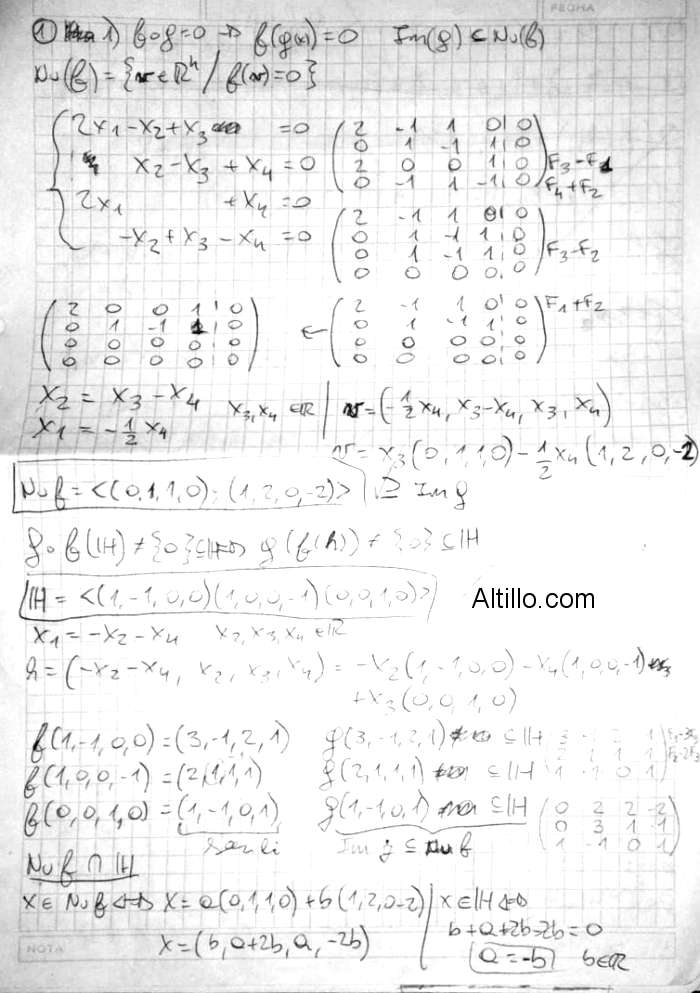 ① 1) f∘g=0 → f(g(x))=0 Im(g) ⊂ Nu(f)
FECHA
Nu(f) = {v∈ℝⁿ / f(v)=0}
2x₁ - x₂ + x₃ = 0
x₂ - x₃ + x₄ = 0
2x₁ + x₄ = 0
-x₂ + x₃ - x₄ = 0
2 -1 1 0 0
0 1 -1 1 0
2 0 0 1 0 F₃-F₁
0 -1 1 -1 0 F₄+F₂
2 -1 1 0 0
0 1 -1 1 0
0 1 -1 1 0 F₃-F₂
0 0 0 0 0
2 -1 1 0 0 F₁+F₂
0 1 -1 1 0
0 0 0 0 0
0 0 0 0 0
←
2 0 0 1 0
0 1 -1 1 0
0 0 0 0 0
0 0 0 0 0
x₂ = x₃ - x₄
x₁ = -½ x₄
x₃, x₄ ∈ℝ
v = (-½x₄, x₃-x₄, x₃, x₄)
v = x₃(0,1,1,0) - ½x₄(1,2,0,-2)
Nu f = <(0,1,1,0); (1,2,0,-2)> ⊇ Im g
g∘f(H) ≠ {0} ⊆ H ⇔ g(f(h)) ≠ {0} ⊆ H
H = <(1,-1,0,0)(1,0,0,-1)(0,0,1,0)>
Altillo.com
x₁ = -x₂ - x₄ x₂,x₃,x₄ ∈ℝ
h = (-x₂-x₄, x₂, x₃, x₄) = -x₂(1,-1,0,0) - x₄(1,0,0,-1)
+x₃(0,0,1,0)
f(1,-1,0,0) = (3,-1,2,1) g(3,-1,2,1) ⊆ H
f(1,0,0,-1) = (2,1,1,1) g(2,1,1,1) ⊆ H
f(0,0,1,0) = (1,-1,0,1) g(1,-1,0,1) ⊆ H
Im g ⊆ Nu f
0 2 2 -2
0 3 1 -1
1 -1 0 1
Nu f ∩ H
x ∈ Nu f ⇔ x = a(0,1,1,0) + b(1,2,0-2)
x = (b, a+2b, a, -2b)
x ∈ H ⇔
b+a+2b-2b = 0
a = -b b∈ℝ
NOTA